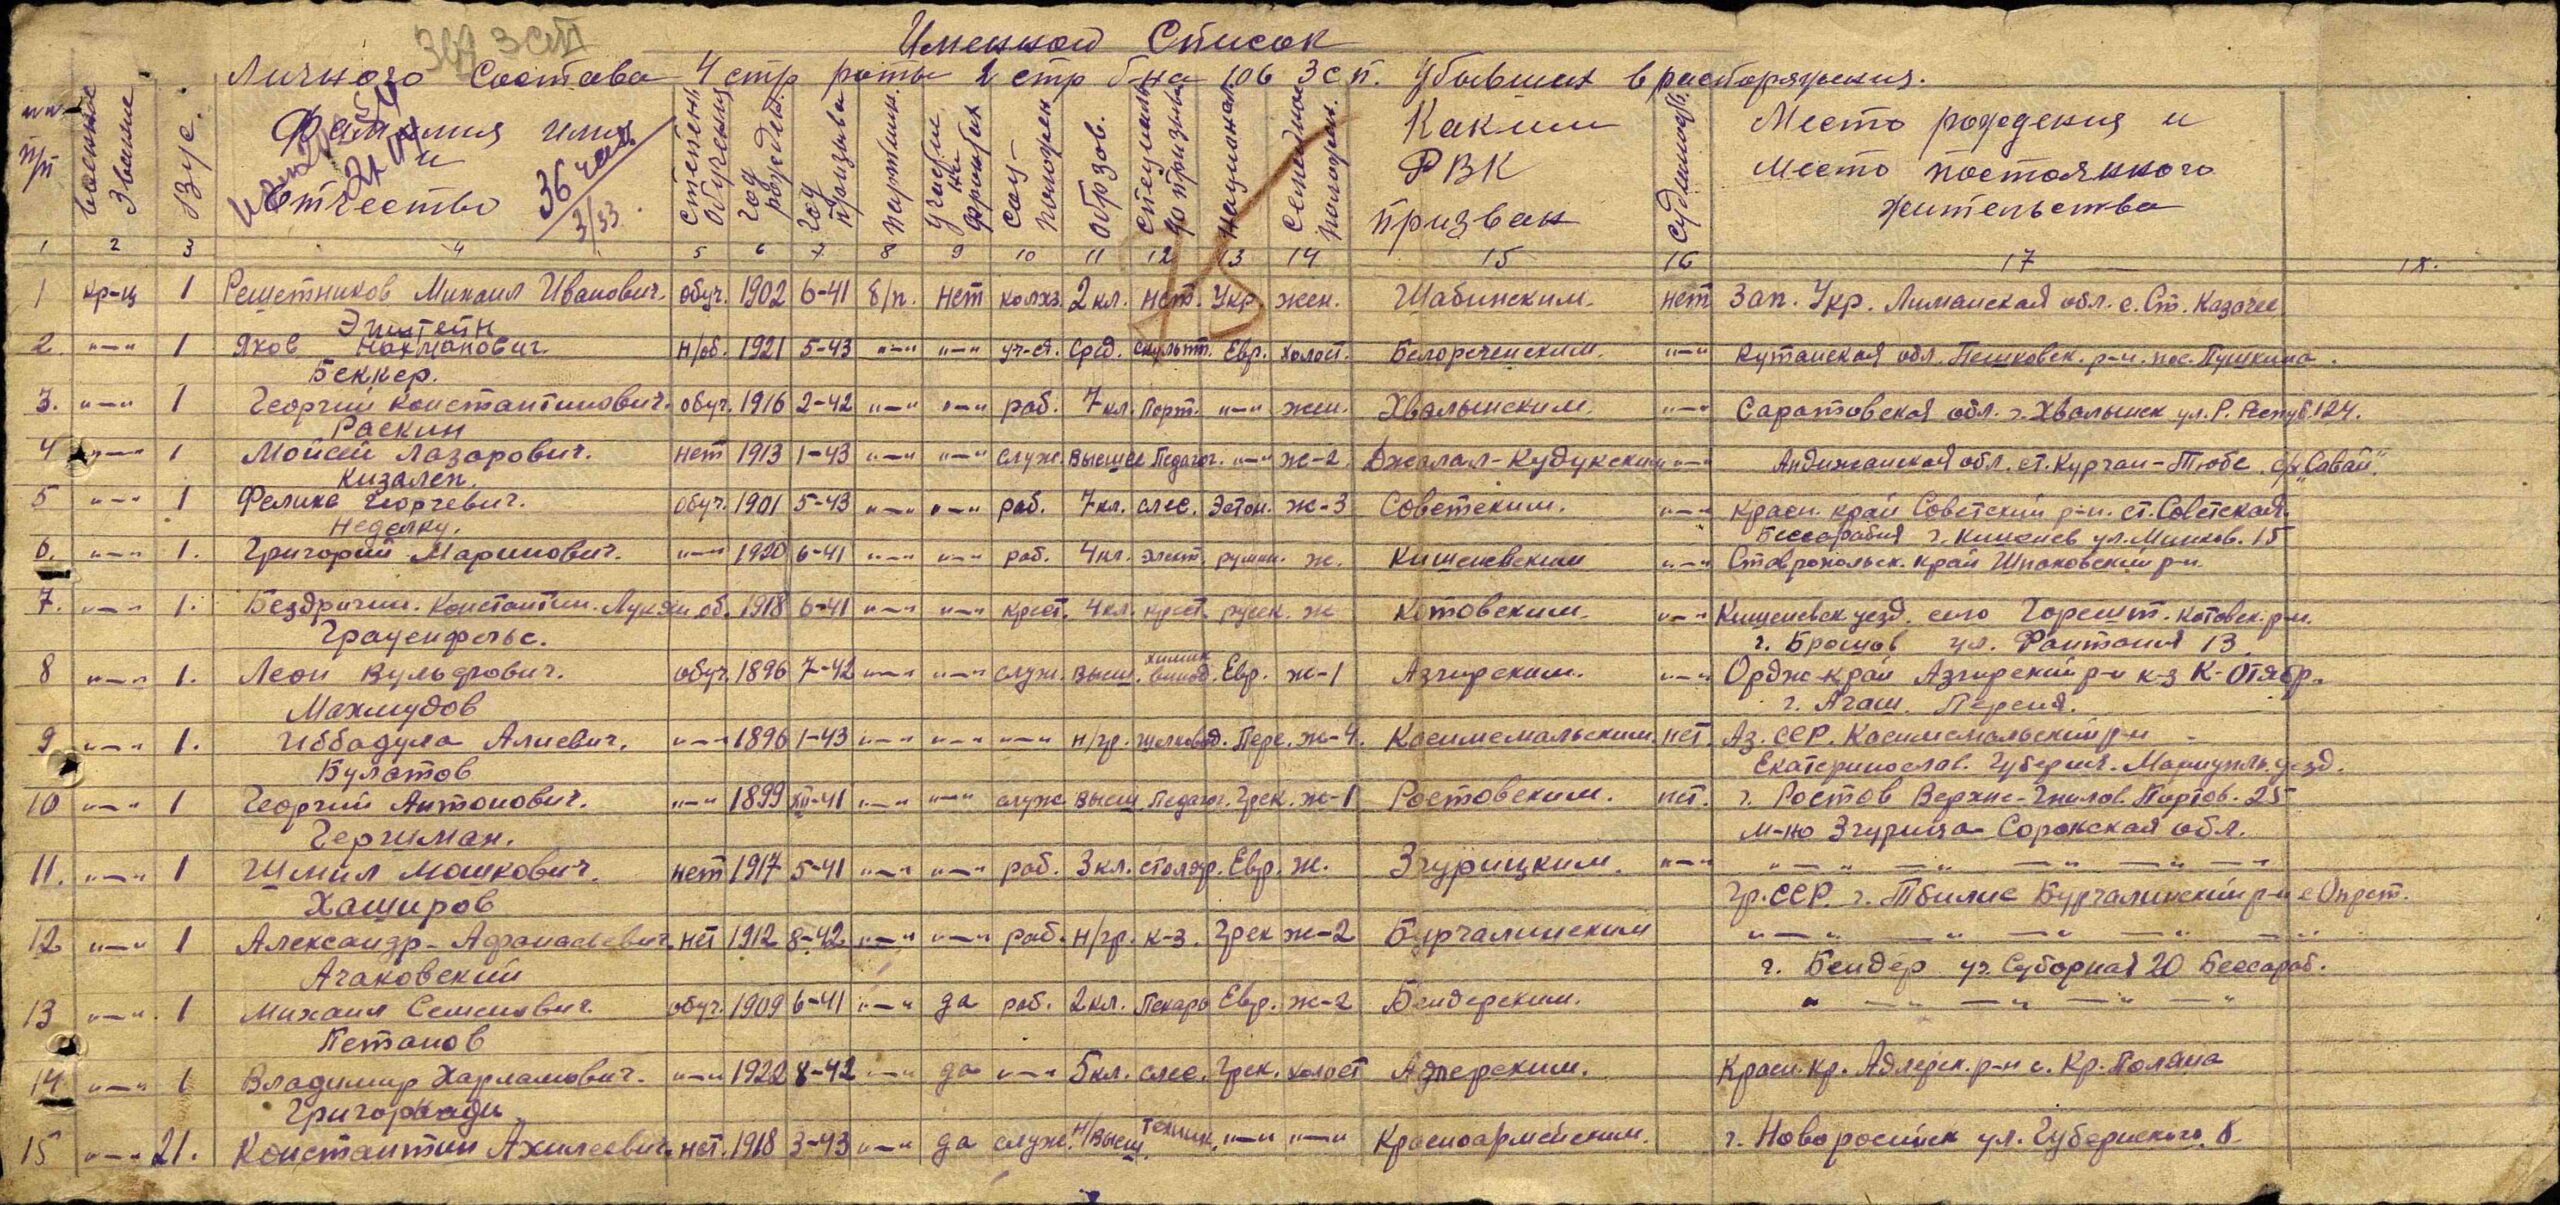 Именной Список
Личного Состава 4 стр роты 2 стр б-на 106 ЗСП. убывших в распоряжения.
№№ п/п
военное звание
ВУС.
Фамилия имя и отчество
36 чел.
3/33.
степень обучения
год рожден.
год призыва
партийн.
участие на фронтах
соц положен.
образов.
специальн. до призыва
национал.
семейное положен.
Каким РВК призван
судимость.
Место рождения и место постоянного жительства
1 2 3 4 5 6 7 8 9 10 11 12 13 14 15 16 17 18.
1 кр-ц 1 Решетников Михаил Иванович. обуч. 1902 6-41 б/п. нет колхз. 2 кл. нет. Укр жен. Шабинским. нет Зап. Укр. Лиманская обл. с. Ст. Казачее
Эпштейн
2. "—" 1 Яков Нахманович. н/об. 1921 5-43 "—" "—" уч-ся. сред. скульпт. Евр. холост. Белореченским. "—" Кутаиская обл. р-н. пос. Пушкина.
Беккер.
3. "—" 1 Георгий Константинович. обуч. 1916 2-42 "—" "—" раб. 7 кл. Порт. "—" жен. Хвалынским. "—" Саратовская обл. г. Хвалынск ул. Р. Респуб. 124.
Раскин
4 "—" 1 Мойсей Лазарович. нет 1913 1-43 "—" "—" служ. высшее Педагог. "—" ж-2 Джалал-Кудукским "—" Андижанская обл. ст. Курган-Тюбе с/х "Савай".
Кизалеп.
5 "—" 1 Феликс Георгевич. обуч. 1901 5-43 "—" "—" раб. 7 кл. слес. Эстон. ж-3 Советским. "—" Красн. край Советский р-н. ст. Советская.
Неделку.
Бессарабия г. Кишенев ул. 15
6. "—" 1. Григорий Маринович. "—" 1920 6-41 "—" "—" раб. 4 кл. элект. румын. ж. Кишеневским "—" Ставропольск. край Шпаковский р-н.
7. "—" 1. Бездричин. Константин. об. 1918 6-41 "—" "—" крест. 4 кл. крест. русск. ж Котовским. "—" Кишеневск уезд. село Горешт. Котовск. р-н.
Грауенфельс.
г. Фонтаная 13.
8 "—" 1. Леон Вульфович. обуч. 1896 7-42 "—" "—" служ. высш. химик винод. Евр. ж-1 Азгирским. "—" Ордж край Азгирский р-н к-з К-Отябр.
Махмудов
г. Агаш. Персия.
9 "—" 1. Иббадула Алиевич. "—" 1896 1-43 "—" "—" "—" н/гр. шелковод. Перс. ж-4. Касимсмальским. нет. Аз. ССР. Касимсмальский р-н
Булатов
Екатеринослав. Губерния. Мариуполь. уезд.
10 "—" 1 Георгий Антонович. "—" 1899 XII-41 "—" "—" служ. высш Педагог. Грек. ж-1 Ростовским. нет. г. Ростов Верхне-Гнилов. Портов. 25
Гершман.
м-но Згурица Сорокская обл.
11. "—" 1 Шмил Мошкович. нет 1917 5-41 "—" "—" раб. 3 кл. столяр. Евр. ж. Згурицким. "—" "—" —" —" —" —"
Хаширов
Гр. ССР. г. Тбилис Бурчалинский р-н с Опрет.
12 "—" 1 Александр-Афанасьевич нет 1912 8-42 "—" "—" раб. н/гр. к-з. Грек ж-2 Бурчалинским "—" —" —" —" —"
Ачаковский
г. Бендер ул. Суборная 20 Бессараб.
13 "—" 1 Михаил Семенович. обуч. 1909 6-41 "—" да раб. 2 кл. Пекарь Евр. ж-2 Бендерским. " —" —" —" —"
Петанов
14 "—" 1 Владимир Харламович. "—" 1922 8-42 "—" да "—" 5 кл. слес. Грек. холост Адлерским. Красн. кр. Адлерск. р-н с. Кр. Поляна
Григориади
15 "—" 21. Константин Ахилеевич. нет. 1918 3-43 "—" да служ. н/высш. техник. "—" "—" Красноармейским. г. Новоросийск ул. Губернского 8.